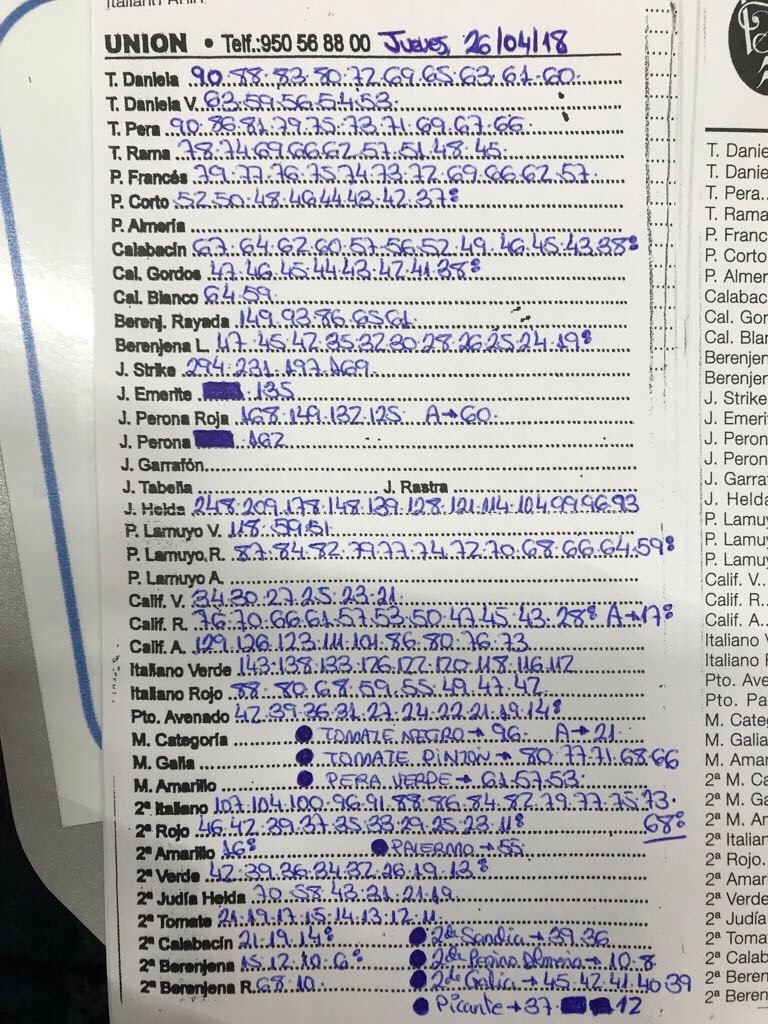 UNION • Telf.:950 56 88 00 Jueves, 26/04/18
T. Daniela 90.88.83.80.72.69.65.63.61.60.
T. Daniela V. 63.59.56.54.53.
T. Pera 90.86.81.79.75.73.71.69.67.66.
T. Rama 78.74.69.66.62.57.51.48.45.
P. Francés 79.77.76.75.74.73.72.69.66.62.57.
P. Corto 52.50.48.46.44.43.42.37.8
P. Almería
Calabacín 67.64.62.60.57.56.52.49.46.45.43.38.8
Cal. Gordos 47.46.45.44.43.42.41.38.8
Cal. Blanco 64.59.
Berenj. Rayada 149.93.86.65.61.
Berenjena L. 47.45.42.35.32.30.28.26.25.24.19.8
J. Strike 294.231.197.169.
J. Emerite 135
J. Perona Roja 168.149.132.125 A→60.
J. Perona 162
J. Garrafón
J. Tabella J. Rastra
J. Helda 248.209.178.148.139.128.121.114.104.99.96.93
P. Lamuyo V. 118.59.51.
P. Lamuyo R. 87.84.82.79.77.74.72.70.68.66.64.59.8
P. Lamuyo A.
Calif. V. 34.30.27.25.23.21
Calif. R. 76.70.66.61.57.53.50.47.45.43.28.8 A→17.8
Calif. A. 129.126.123.111.101.86.80.76.73
Italiano Verde 143.138.133.126.122.120.118.116.112
Italiano Rojo 88.80.68.59.55.49.47.42
Pto. Avenado 42.39.36.31.27.24.22.21.19.14.8
M. Categoría • TOMATE NEGRO→96. A→21.
M. Galia • TOMATE PINTON→80.77.71.68.66
M. Amarillo • PERA VERDE→61.57.53.
2ª Italiano 107.104.100.96.91.88.86.84.82.79.77.75.73.
68.8
2ª Rojo 46.42.39.37.35.33.29.25.23.11.8
2ª Amarillo 16.8 • PALERMO→55.
2ª Verde 42.39.36.34.32.26.19.13.8
2ª Judía Helda 70.58.43.31.21.19.
2ª Tomate 21.19.17.15.14.13.12.11.
2ª Calabacín 21.19.14.8 • 2ª de Sandia→39.36
2ª Berenjena 15.12.10.6.8 • 2ª de Pepino Almeria→10.8
2ª Berenjena R. 68.10. • 2ª de Galia→45.42.41.40.39
• Picante→37. 12
T. Danie
T. Danie
T. Pera..
T. Rama
P. Franc
P. Corto
P. Almer
Calabac
Cal. Gor
Cal. Blar
Berenjen
Berenjen
J. Strike
J. Emeri
J. Peron
J. Peron
J. Garra
J. Helda
P. Lamu
P. Lamuy
P. Lamuy
Calif. V..
Calif. R..
Calif. A..
Italiano V
Italiano R
Pto. Ave
Pto. Pa
M. Categ
M. Galia
M. Amar
2ª M. Ca
2ª M. Ga
2ª M. An
2ª Italian
2ª Rojo.
2ª Amar
2ª Verde
2ª Judía
2ª Toma
2ª Calab
2ª Beren
2ª Beren